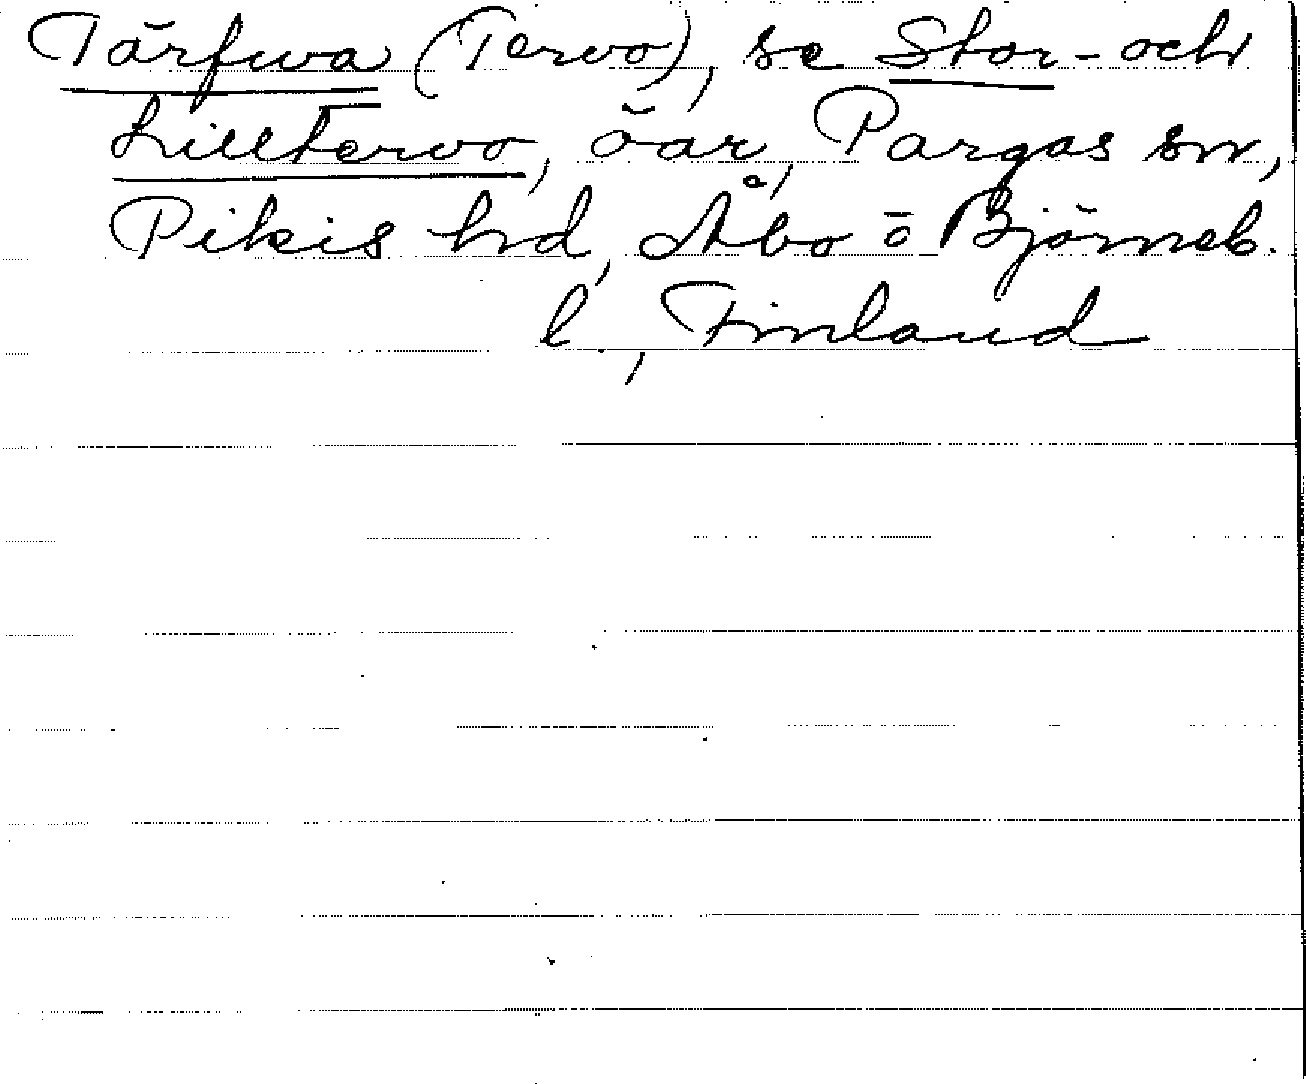 Tärfwa (Tervo), se Stor- och
Lilltervo, öar, Pargas sn,
Pikis hd, Åbo o Björneb.
l., Finland